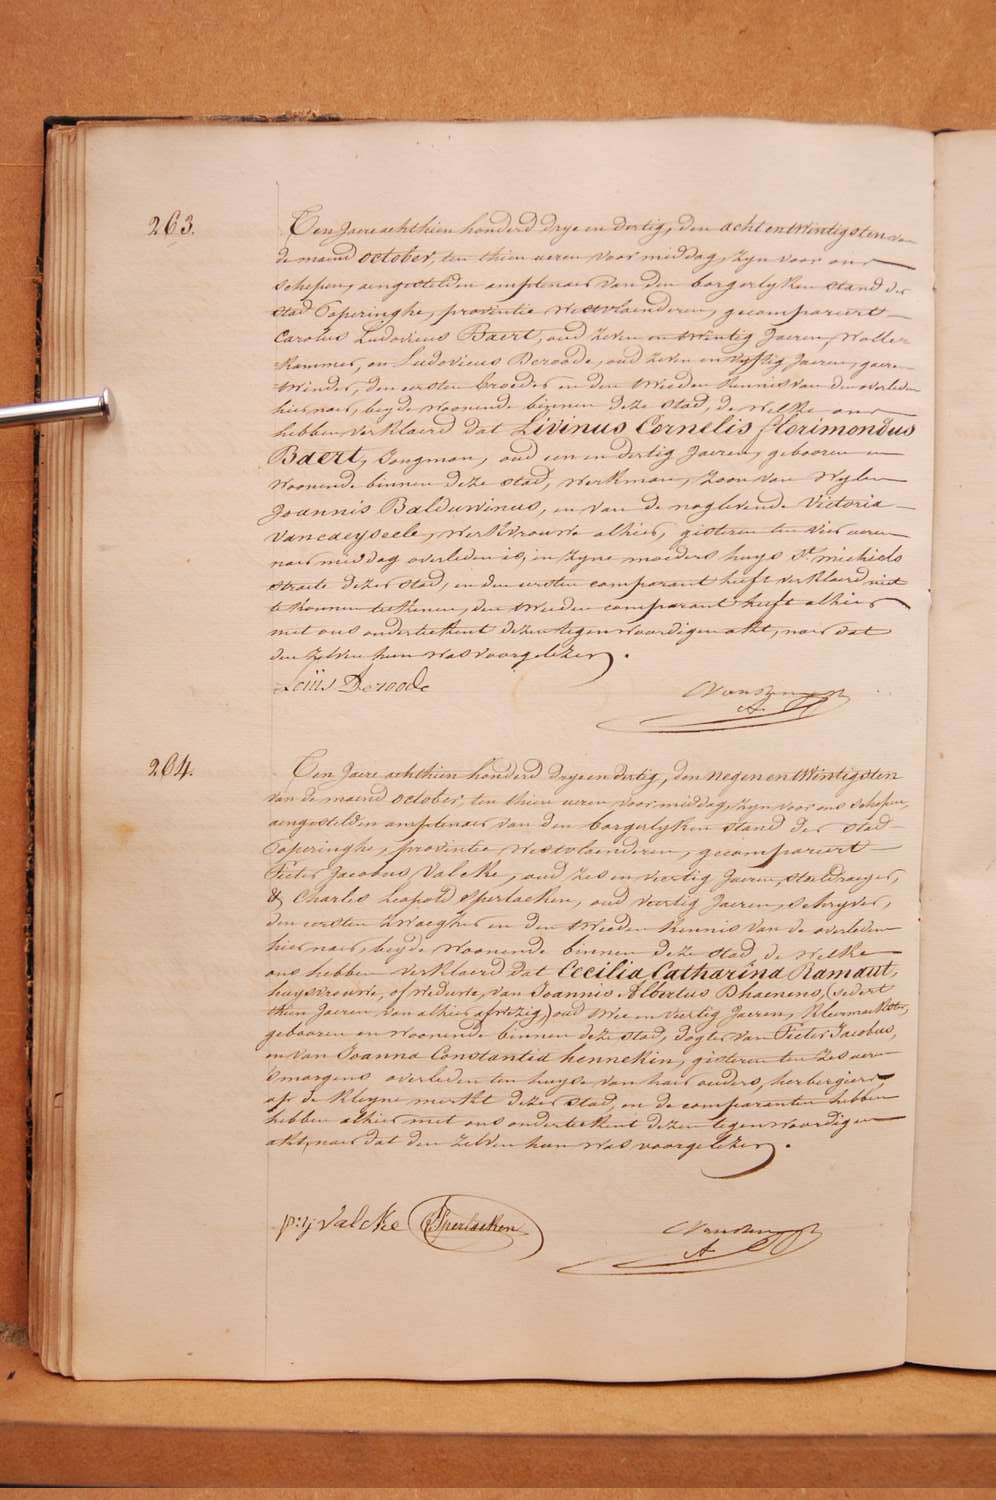 263.
Ten Jaere achthien honderd drye en dertig, den acht en twintigsten van
de maend october, ten thien ueren voor middag, zyn voor ons
schepen, aengestelden amptenaer van den borgerlyken stand der
stad Poperinghe, provintie Westvlaenderen, gecompareert
Carolus Ludovicus Baert, oud zeven en twintig Jaeren, wolle
kammer, en Ludovicus Deroode, oud zeven en vyftig Jaeren, gaeren
twinder, den eersten broeder en den tweeden kennis van den overleden
hiernaer, beyde woonende binnen deze stad, de welke ons
hebben verklaerd dat Livinus Cornelis Florimondus
Baert, Jongman, oud een en dertig Jaeren, gebooren en
woonende binnen deze stad, werkman, zoon van wylen
Joannis Balduwinus, en van de naglevende Victoria
Vancaeyseele, werkvrouwe alhier, gisteren ten vier ueren
naer middag overleden is, in zyne moeders huys St. michiels
straete dezer stad, en den eersten comparant heeft verklaerd niet
te konnen teekenen, den tweeden comparant heeft alhier
met ons onderteekent dezen tegenwoordigen akt, naer dat
den zelven hun was voorgelezen.
Loüis Deroode
264.
Ten Jaere achthien honderd drye en dertig, den negen en twintigsten
van de maend october, ten thien ueren voor middag, zyn voor ons schepen,
aengestelden amptenaer van den borgerlyken stand der stad
Poperinghe, provintie Westvlaenderen, gecompareert
Pieter Jacobus Valcke, oud zes en veertig Jaeren, stoeldraeyer,
& Charles Leopold Sperlaeken, oud veertig Jaeren, schryver,
den eersten zwaegher en den tweeden kennis van de overleden
hiernaer, beyde woonende binnen deze stad, de welke
ons hebben verklaerd dat Cecilia Catharina Ramaut,
huysvrouwe, of weduwe, van Joannis Albertus Dhaenens, (sedert
thien Jaeren van alhier afwezig,) oud twee en veertig Jaeren, kleermaekster,
gebooren en woonende binnen deze stad, dogter van Pieter Jacobus,
en van Joanna Constantia hennekin, gisteren ten zes ueren
smorgens overleden ten huyse van haer ouders, herbergiers,
op de kleyne merkt dezer stad, en de comparanten hebben
hebben alhier met ons onderteekent dezen tegenwoordigen
akt, naer dat den zelven hun was voorgelezen.
p: j Valcke Sperlaeken